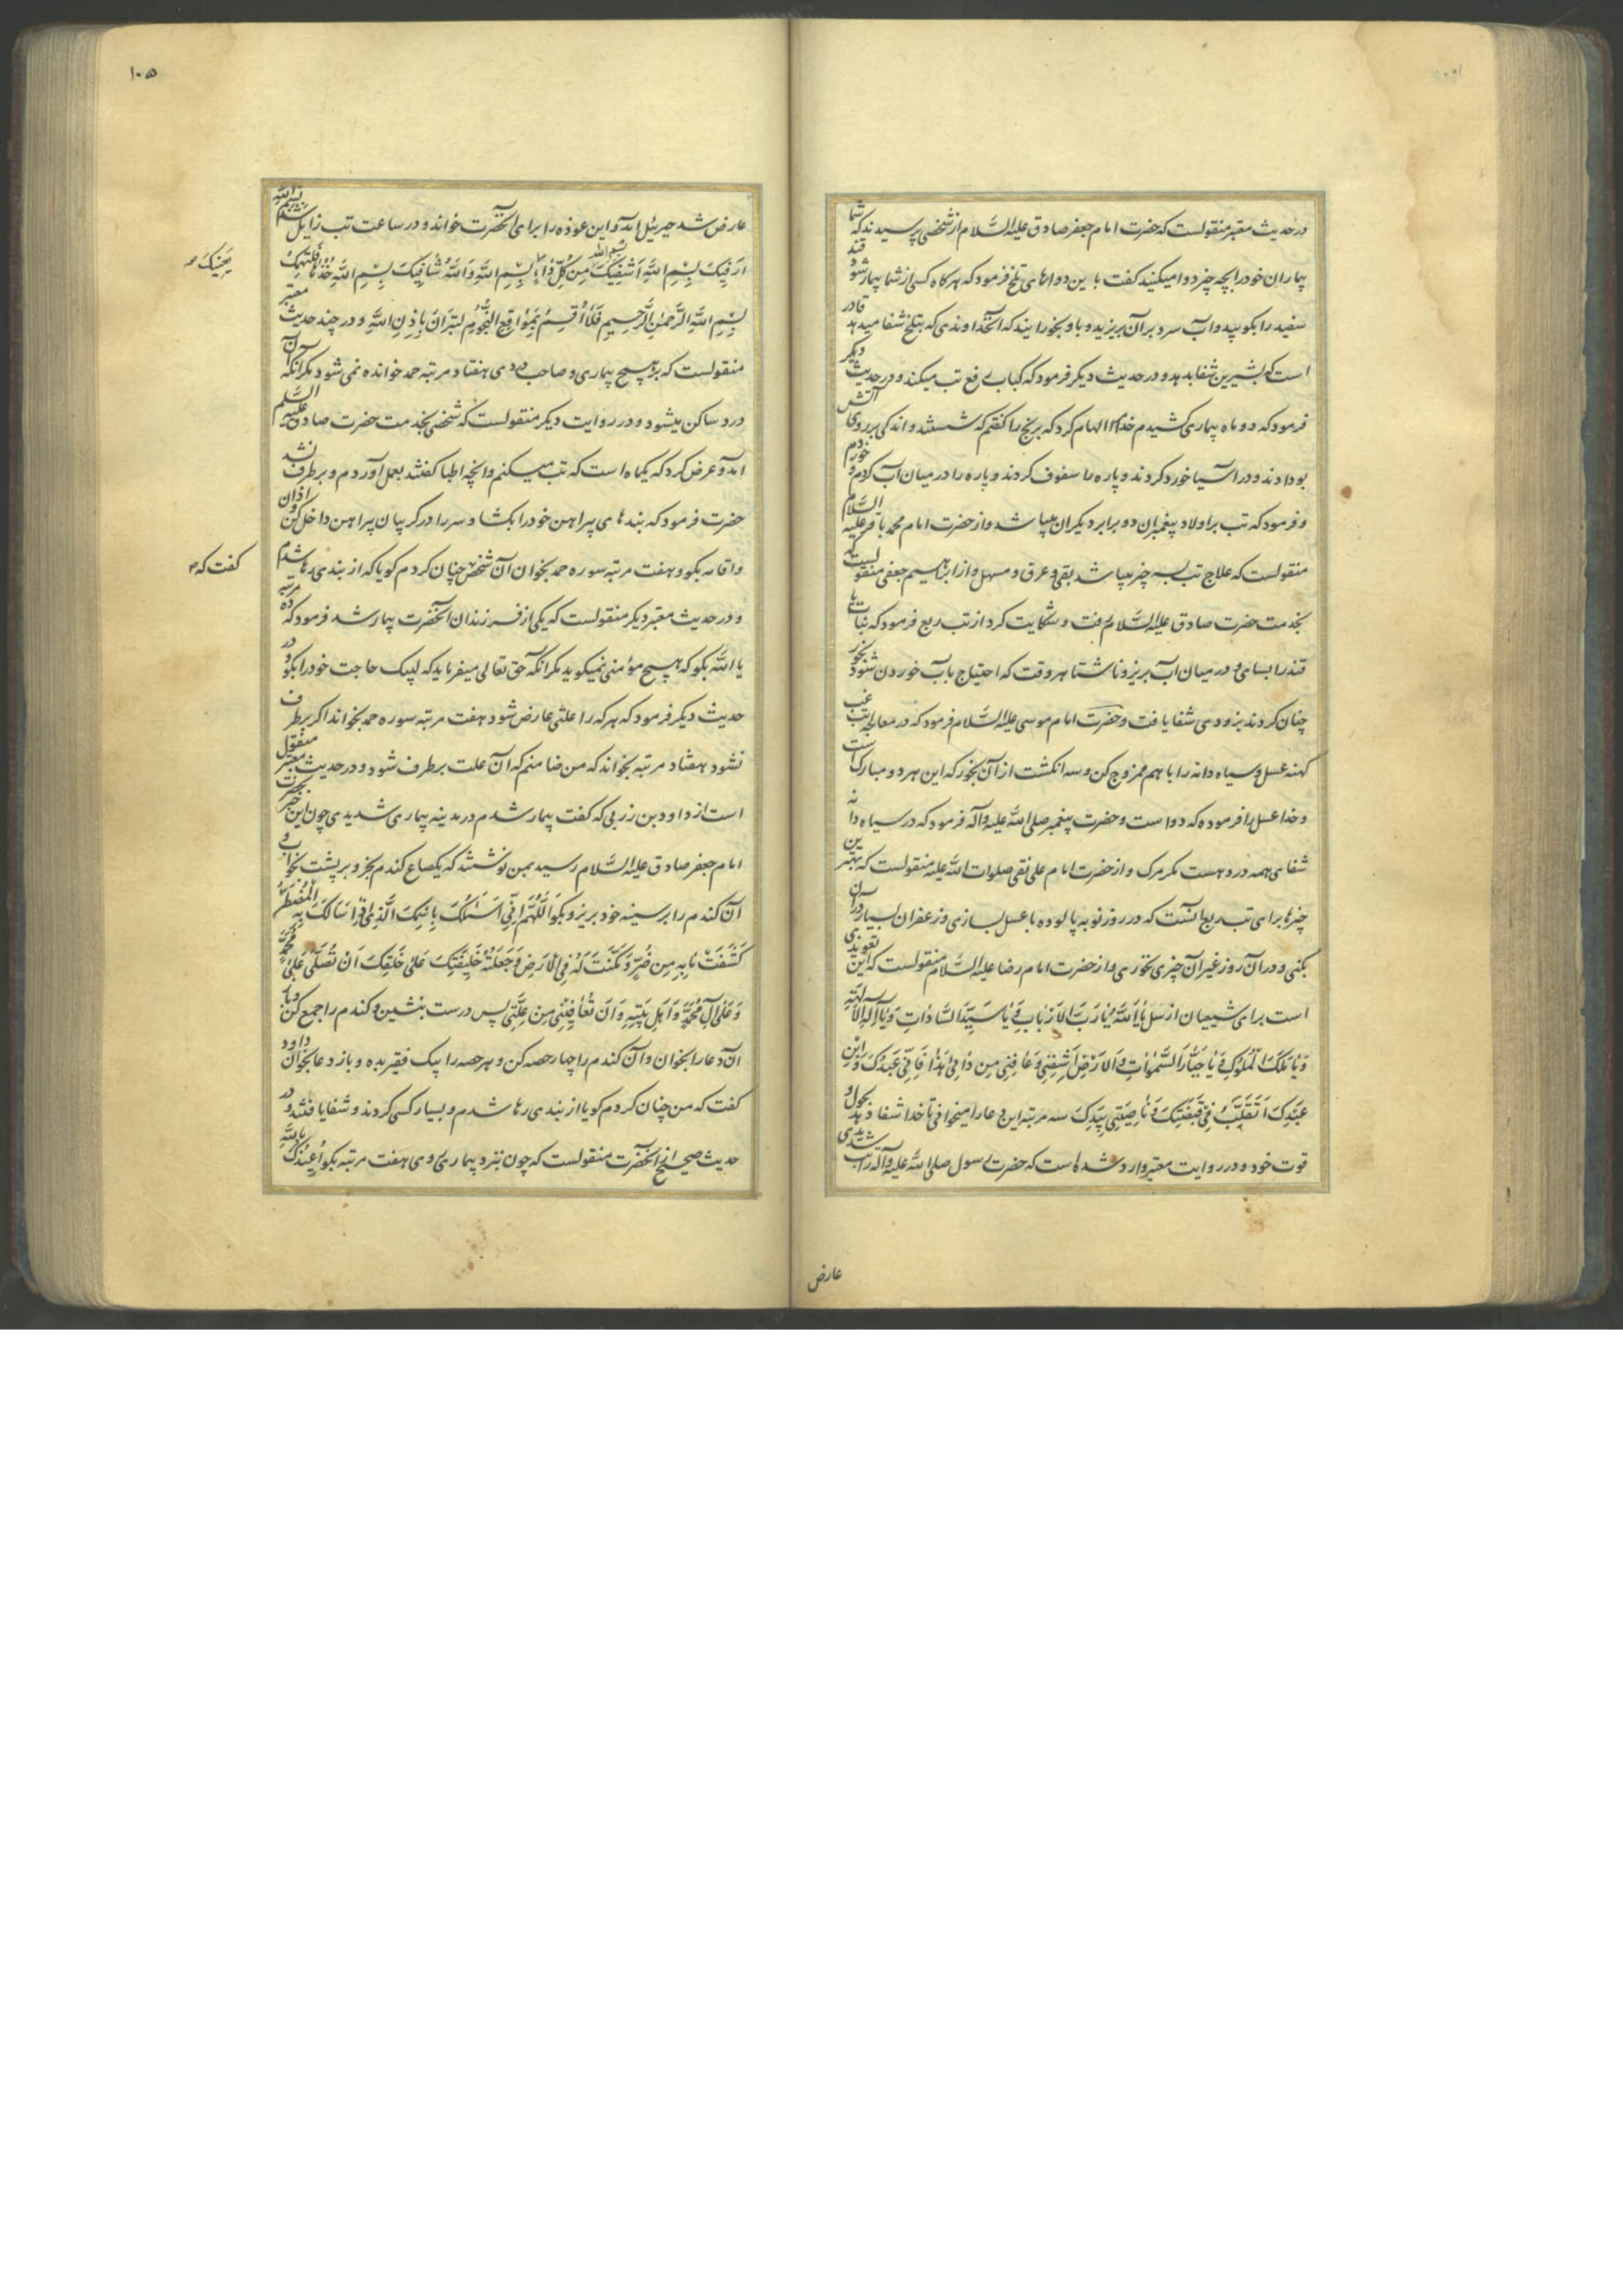 در حدیث معتبر منقولست که حضرت امام جعفر صادق علیه السّلام از شخصی پرسیدند که شما
بیماران خود را بچه چیز دوا میکنید کفت باین دواهای تلخ فرمود که هرکاه کسی از شما بیمار شود قند
سفید را بکوبید و آب سرد بر آن بریزید و باو بخورانید که آنخداوندی که بتلخ شفا میدهد قادر
است که بشیرین شفا بدهد و در حدیث دیکر فرمود که کباب رفع تب میکند و در حدیث دیکر
فرمود که دو ماه بیماری کشیدم خدا الهام کرد که برنج را کفتم که شستند و اندکی بر روی آتش
بو دادند و در آسیا خورد کردند و پاره را سفوف کردند و پاره را در میان آب کردم و خوردم
و فرمود که تب بر اولاد پیغمبران دو برابر دیکران میباشد و از حضرت امام محمد باقر علیه السّلام
منقولست که علاج تب بسه چیز میباشد بقی و عرق و مسهل و از ابراهیم جعفی منقولست که
بخدمت حضرت صادق علیه السّلام رفت و شکایت کرد از تب ربع فرمود که نبات یا
قند را بسای و در میان آب بریز و ناشتا هر وقت که احتیاج بآب خوردن شود بخور
چنان کردند بزودی شفا یافت و حضرت امام موسی علیه السّلام فرمود که در معالجه تب غب
کهنه عسل و سیاه دانه را با هم ممزوج کن و سه انکشت از آن بخور که این هر دو مبارک است
و خدا عسل را فرموده که دواست و حضرت پیغمبر صلی الله علیه و آله فرمود که در سیاه دانه
شفای همه درد هست مکر مرک و از حضرت امام علی نقی صلوات الله علیه منقولست که بهترین
چیزها برای تب ربع آنست که در روز نوبه پالوده با عسل بسازی و زعفران بسیار در آن
بکنی و در آن روز غیر آن چیزی نخوری و از حضرت امام رضا علیه السّلام منقولست که این تعویذی
است برای شیعیان از سل یا الله یا رب الارباب و یا سید السادات و یا اله الالهة
و یا ملک الملوک و یا جبار السموات و الارض اشفنی و عافنی من دائی هذا فانی عبدک و ابن
عبدک اتقلب فی قبضتک و ناصیتی بیدک سه مرتبه این دعا را میخوانی تا خدا شفا دهد بحول و
قوت خود و در روایت معتبر وارد شده است که حضرت رسول صلی الله علیه و آله را تب شدیدی
عارض
۱۰۵
عارض شد جبرئیل آمد و این عوذه را برای آنحضرت خواند و در ساعت تب زایل شد بسم الله
ارقیک بسم الله اشفیک من کل داء بسم الله و الله شافیک بسم الله خذها فلتهنیک
بسم الله الرحمن الرحیم فلا اقسم بمواقع النجوم لتبرأن باذن الله و در چند حدیث معتبر
منقولست که بر هیچ بیماری و صاحب دردی هفتاد مرتبه حمد خوانده نمی شود مکر آنکه آن
درد ساکن میشود و در روایت دیکر منقولست که شخصی بخدمت حضرت صادق علیه السّلم
آمد و عرض کرد که یکماه است که تب میکنم و آنچه اطبا کفتند بعمل آوردم و برطرف نشد
حضرت فرمود که بندهای پیراهن خود را بکشا و سر را در کریبان پیراهن داخل کن و اذان
و اقامه بکو و هفت مرتبه سوره حمد بخوان آن شخص چنان کردم کویا که از بندی رها شدم
کفت که
و در حدیث معتبر دیکر منقولست که یکی از فرزندان آنحضرت بیمار شد فرمود که ده مرتبه
یا الله بکو که هیچ مؤمنی نمیکوید مکر آنکه حق تعالی میفرماید که لبیک حاجت خود را بکو و در
حدیث دیکر فرمود که هر که را علتی عارض شود هفت مرتبه سوره حمد بخواند اکر برطرف
نشود هفتاد مرتبه بخواند که من ضامنم که آن علت برطرف شود و در حدیث معتبر منقول
است از داود بن زربی که کفت بیمار شدم در مدینه بیماری شدیدی چون این خبر بحضرت
امام جعفر صادق علیه السّلام رسید بمن نوشتند که یکصاع کندم بخر و بر پشت بخواب و
آن کندم را بر سینه خود بریز و بکو اللهم انی اسئلک باسمک الذی اذا سالک به المضطر
کشفت ما به من ضر و مکنت له فی الارض و جعلته خلیفتک علی خلقک ان تصلی علی محمد
و علی آل محمد و اهل بیته و ان تعافینی من علتی پس درست بنشین و کندم را جمع کن و باز
آن دعا را بخوان و آن کندم را چهار حصه کن و هر حصه را بیک فقیر بده و باز دعا بخوان داود
کفت که من چنان کردم کویا از بندی رها شدم و بسیار کسی کردند و شفا یافتند و در
حدیث صحیح از آنحضرت منقولست که چون نزد بیماری روی هفت مرتبه بکو اعیذک بالله